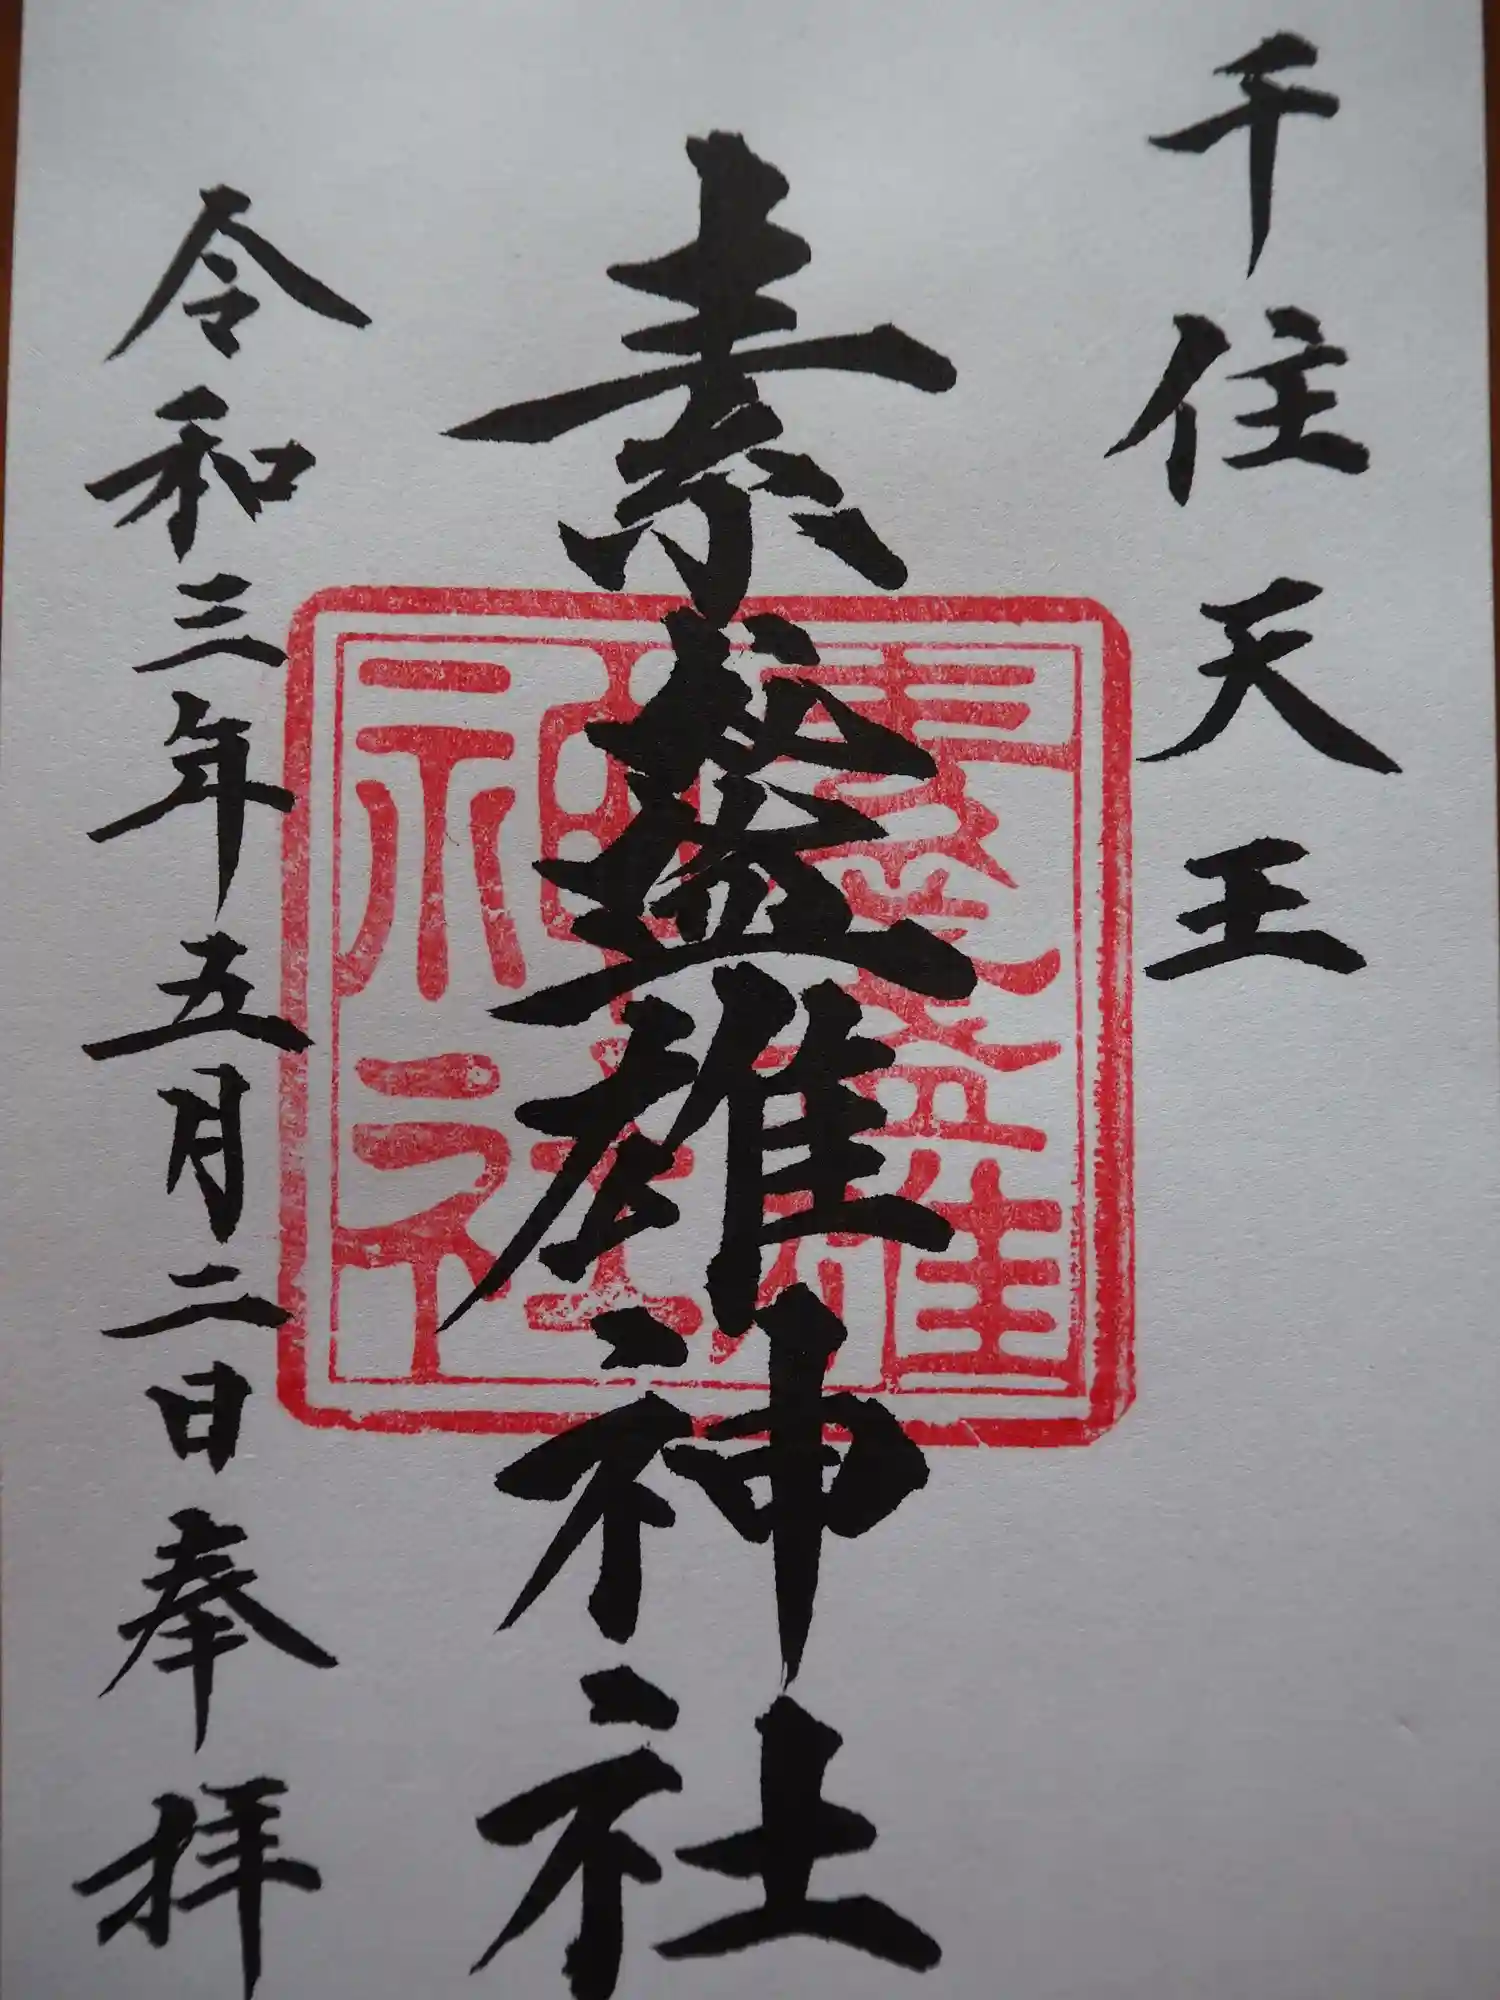 千住天王
素盞雄神社
令和三年五月二日奉拝
素盞雄神社